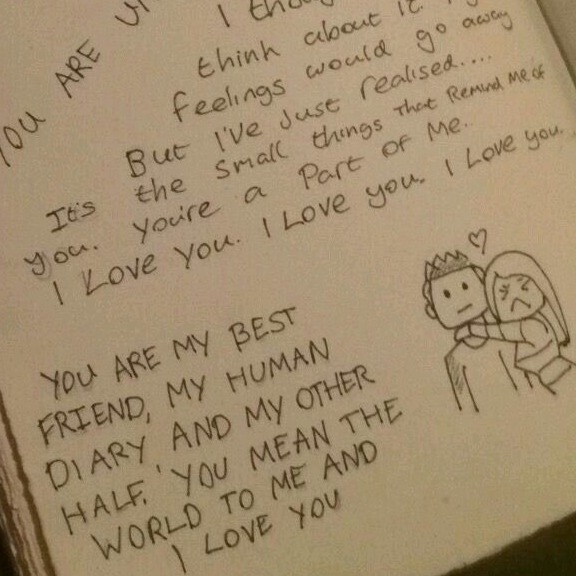 YOU ARE
I
think about it
feelings would go away
But I've just realised....
It's the small things that Remind me of
you. you're a Part of Me.
I Love you. I Love you. I Love you.
YOU ARE MY BEST
FRIEND, MY HUMAN
DIARY AND MY OTHER
HALF. YOU MEAN THE
WORLD TO ME AND
I LOVE YOU